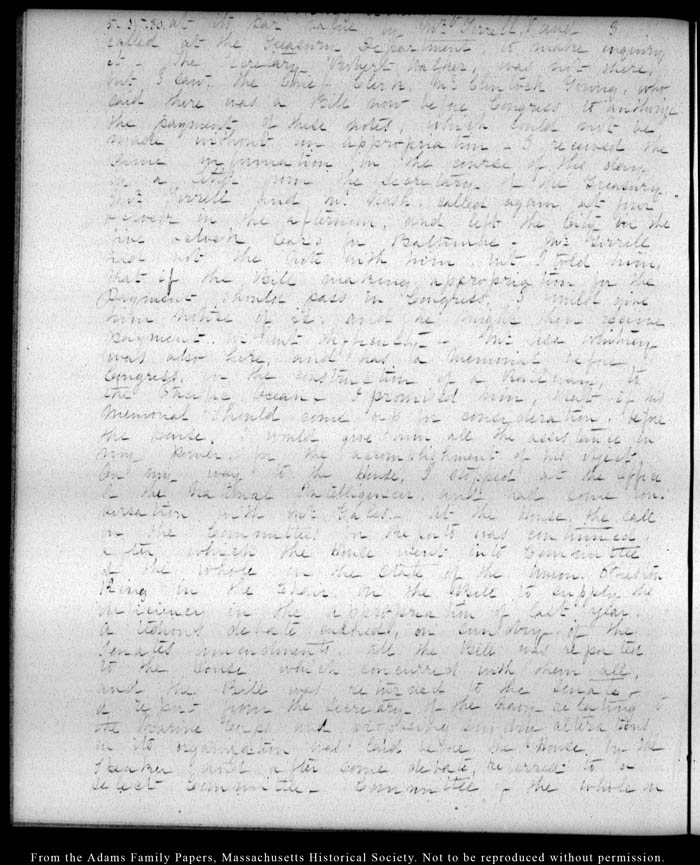 5. 31. 30. at its par value by Mr Tirrell, and I
called at the Treasury Department, to make enquiry
The Secretary Robert Walker, was not there,
but I saw the Chief Clerk, McClintock Young, who
said there was a Bill now before Congress to authorize
the payment of these notes, which could not be
made without an appropriation. I received the
same information in the course of the day
in a letter from the Secretary of the Treasury.
Mr Tirrell and Mr called again at four
o'clock in the afternoon, and left the City in the
five o'clock Cars for Baltimore. Mr Tirrell
had not the Note with him but I told him,
that if the Bill making appropriation for the
Payment should pass in Congress, I would give
him notice of it, and he might then receive
payment without difficulty. Mr Asa Whitney
was also here, and has a Memorial before
Congress, for the construction of a Railway, to
the Pacific Ocean. I promised him, that if his
Memorial should come up for consideration, before
the House, I would give him all the assistance in
my power, for the accomplishment of his object.
On my way to the House, I stopped at the Office
of the National Intelligencer, and had some con-
versation with Mr Gales. At the House, the call
on the Committees for Reports was continued,
after which the House went into Committee
of the whole on the State of the Union,
King in the Chair, on the Bill to supply the
deficiency in the appropriation of last year.
a tedious debate ensued, on sundry of the
Senates amendments. all the Bill was reported
to the House which concurred with them all,
and the Bill was returned to the Senate.
a report from the Secretary of the Navy relating to
the Marine Corps and proposing sundry alterations
in its organization was laid before the House by the
Speaker and after some debate, referred to a
Select Committee. Committee of the whole on
From the Adams Family Papers, Massachusetts Historical Society. Not to be reproduced without permission.